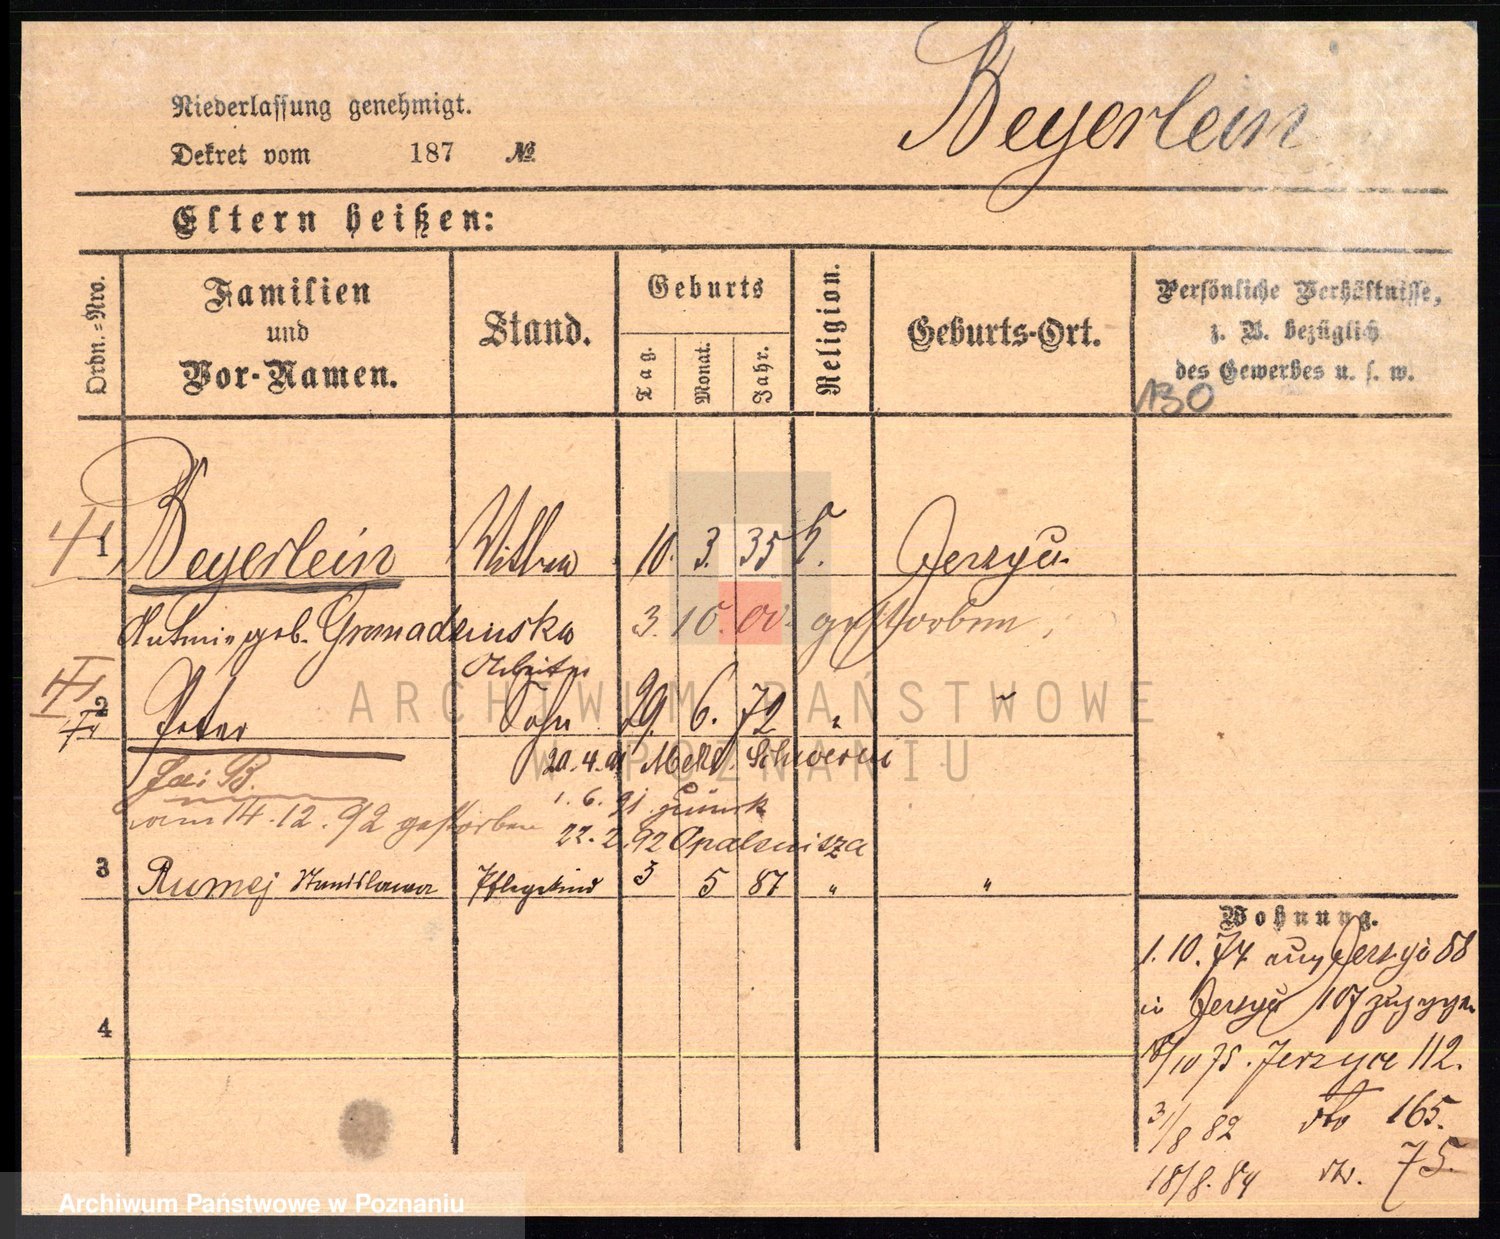 Beyerlein
Niederlassung genehmigt.
Dekret vom 187 №
Eltern heißen:
Ordn.=Nro.
Familien
und
Vor-Namen.
Stand.
Geburts
Tag.
Monat.
Jahr.
Religion.
Geburts-Ort.
Persönliche Verhältnisse,
z. B. bezüglich
des Gewerbes u. s. w.
130
1 Beyerlein Wittwe 10. 3. 35 Jerzyce
geb. Gromadzinska 3. 10. 00. gestorben,
Arbeiter
2 Peter Sohn 29. 6. 72 "
20. 4. 91 Schwerin
am 14. 12. 92 gestorben
1. 6. 91
22. 2. 92 Opalenitza
3 Rumej Stanislawa Pflegekind 3 5 87 " "
4
Wohnung.
1. 10. 74 aus Jerzyce 58
in Jerzyce 107 zugezogen
10 75. Jerzyce 112.
3/8 82 dto 165.
18/8. 84 dto. 75.
ARCHIWUM PAŃSTWOWE
W POZNANIU
Archiwum Państwowe w Poznaniu